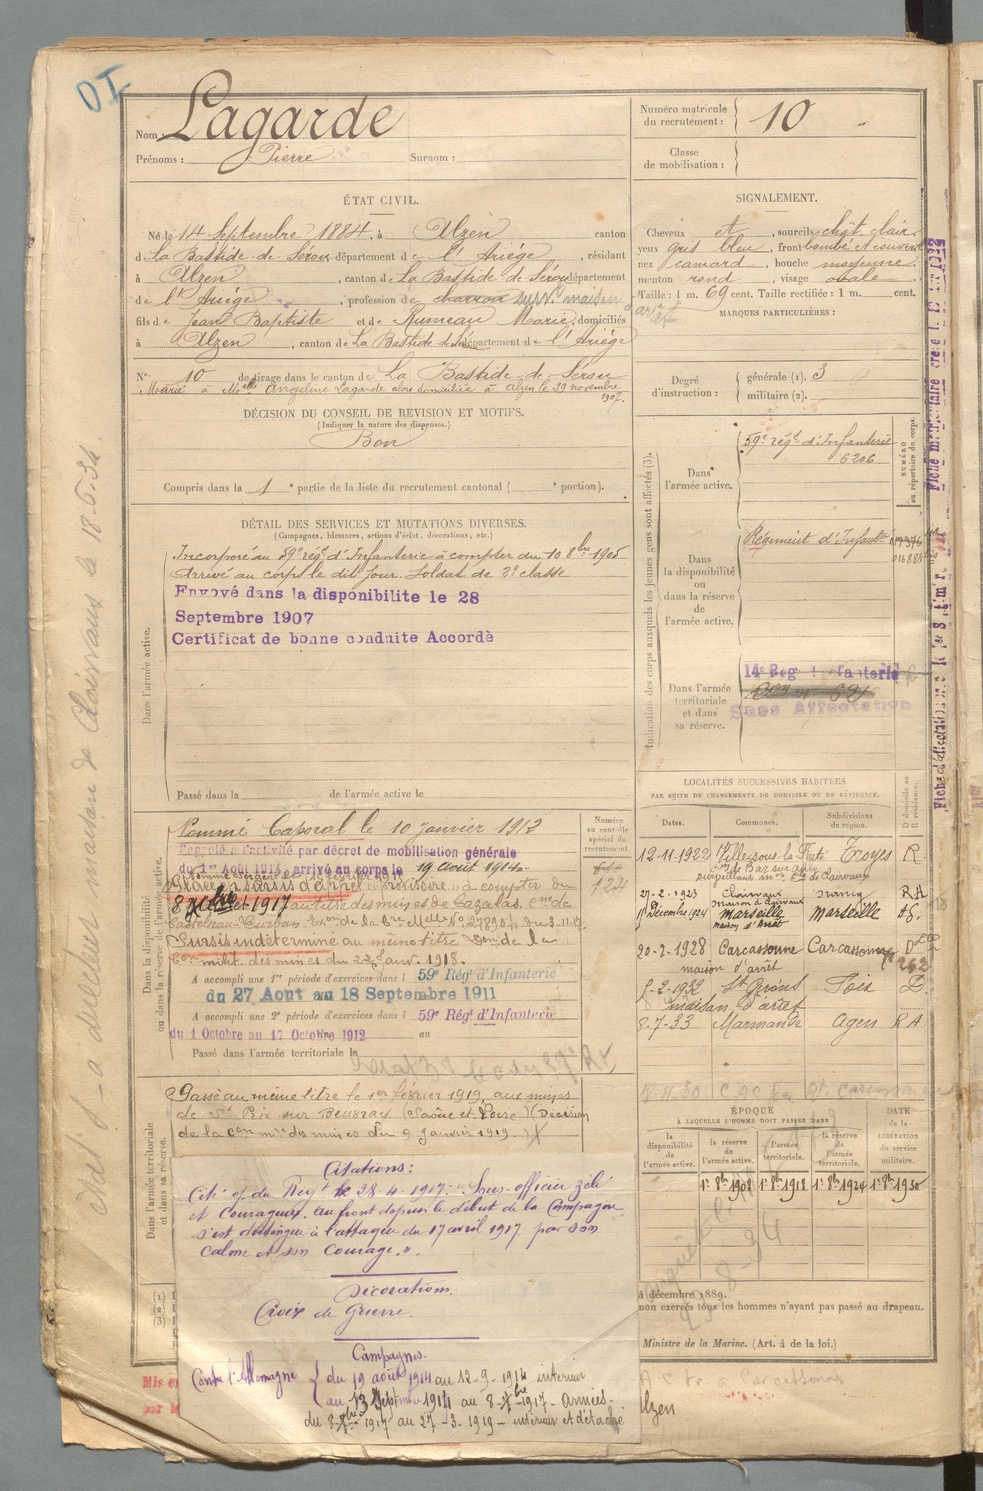 OI
Nom : Lagarde
Prénoms : Pierre Surnom :
Numéro matricule du recrutement : 10
Classe de mobilisation :
ÉTAT CIVIL.
Né le 14 Septembre 1884, à Alzen canton
de La Bastide-de-Sérou département de l'Ariège, résidant
à Alzen, canton de La Bastide de Sérou département
de l'Ariège, profession de charron surv. maison d'arrêt
fils de Jean Baptiste et de Rumeau Marie, domiciliés
à Alzen, canton de La Bastide de département de l'Ariège
N° 10 de tirage dans le canton de La Bastide de Sérou
Marié à Melle Angeline Lagarde alors domiciliée à Alzen le 29 novembre
1907.
DÉCISION DU CONSEIL DE REVISION ET MOTIFS.
(Indiquer la nature des dispenses.)
Bon
Compris dans la 1e partie de la liste du recrutement cantonal ( e portion).
SIGNALEMENT.
Cheveux et, sourcils chât. clair
yeux gris bleu, front bombé et couvert
nez camard, bouche moyenne
menton rond, visage ovale
Taille : 1 m. 69 cent. Taille rectifiée : 1 m. cent.
MARQUES PARTICULIÈRES :
Degré d'instruction : générale (1). 3
militaire (2).
DÉTAIL DES SERVICES ET MUTATIONS DIVERSES.
(Campagnes, blessures, actions d'éclat, décorations, etc.)
Dans l'armée active.
Incorporé au 59e régt d'Infanterie à compter du 10 8bre 1905
Arrivé au corps le dit jour. Soldat de 2e classe
Envoyé dans la disponibilite le 28
Septembre 1907
Certificat de bonne conduite Accordé
Passé dans la de l'armée active le
Indication des corps auxquels les jeunes gens sont affectés (3).
NUMÉRO au répertoire du corps.
Dans l'armée active.
59e régt d'Infanterie
6206
Dans la disponibilité ou dans la réserve de l'armée active.
Régiment d'Infanterie
Dans l'armée territoriale et dans sa réserve.
14e Reg Infanterie
Sans Affectation
Dans la disponibilité ou dans la réserve de l'armée active.
Numéro au contrôle spécial du recrutement.
124
Nommé Caporal le 10 janvier 1912
Rappelé à l'activité par décret de mobilisation générale
du 1er Août 1914, arrivé au corps le 19 août 1914
Placé en sursis d'appel à compter du
8 1917 au titre des mines de Cazalas. Cne de
Castelnau-Durban.
Sursis indéterminé au même titre Don de la
Con milit. des mines du 22 janv. 1918.
A accompli une 1re période d'exercices dans l 59e Régt d'Infanterie
du 27 Aout au 18 Septembre 1911
A accompli une 2e période d'exercices dans l 59e Régt d'Infanterie
du 1 Octobre au 17 Octobre 1912 au
Passé dans l'armée territoriale le
Dans l'armée territoriale et dans sa réserve.
Passé au même titre le 1er février 1919, aux mines
de St Prix sur Beuvray (Saône et Loire) (Décision
de la Con mre des mines du 9 janvier 1919.)
LOCALITÉS SUCCESSIVES HABITÉES
PAR SUITE DE CHANGEMENTS DE DOMICILE OU DE RÉSIDENCE.
Dates. Communes. Subdivisions de région. D domicile ou R résidence.
12-11-1922 Ville-sous-la-Ferté Troyes R.
con de Bar sur aube
surveillant
27-2-1923 Clairvaux nancy RA
maison de clairvaux
Décembre 1924 Marseille Marseille
maison d'Arrêt
20-2-1928 Carcassonne Carcassonne
maison d'arrêt
262
5-2-1932 St Girons Foix D.
maison d'arrêt
8-7-33 Marmande agen RA
ÉPOQUE
À LAQUELLE L'HOMME DOIT PASSER DANS
DATE de la LIBÉRATION du service militaire.
la disponibilité de l'armée active. la réserve de l'armée active. l'armée territoriale. la réserve de l'armée territoriale.
1er 8bre 1908 1er 8bre 1918 1er 8bre 1924 1er 8bre 1930
décembre 1889.
non exercés tous les hommes n'ayant pas passé au drapeau.
Ministre de la Marine. (Art. 4 de la loi.)
Citations :
Cité o/ du Régt le 28-4-1917. "Sous-officier zélé
et Courageux. au front depuis le début de la Campagne,
s'est distingué à l'attaque du 17 avril 1917 par son
calme et son Courage.".
Décorations.
Croix de Guerre.
Campagnes.
Contre l'Allemagne { du 19 août 1914 au 12-9-1914 intérieur
au 13 Septembre 1914 au 8-xbre-1917 - Armées -
du 8-xbre-1917 au 27-3-1919 - intérieur et détaché
Alzen